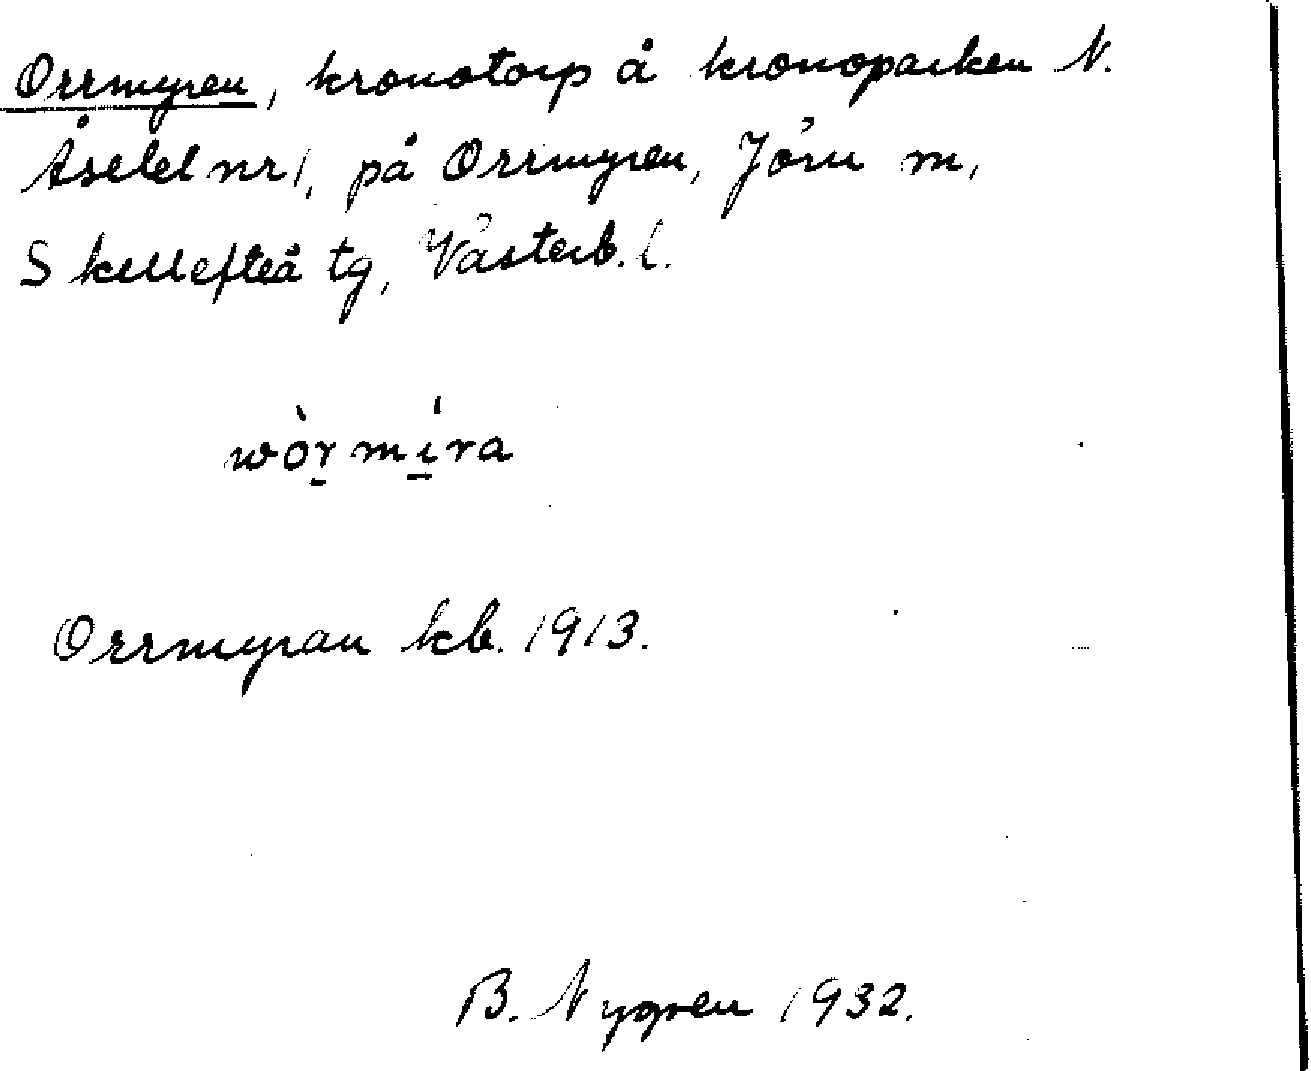 Orrmyren, kronotorp å kronoparken N.
Åselet nr 1, på Orrmyren, Jörn m,
Skellefteå tg, Västerb. l.
wòr̠ mí̠ra
Orrmyran kb. 1913.
B. Nygren 1932.